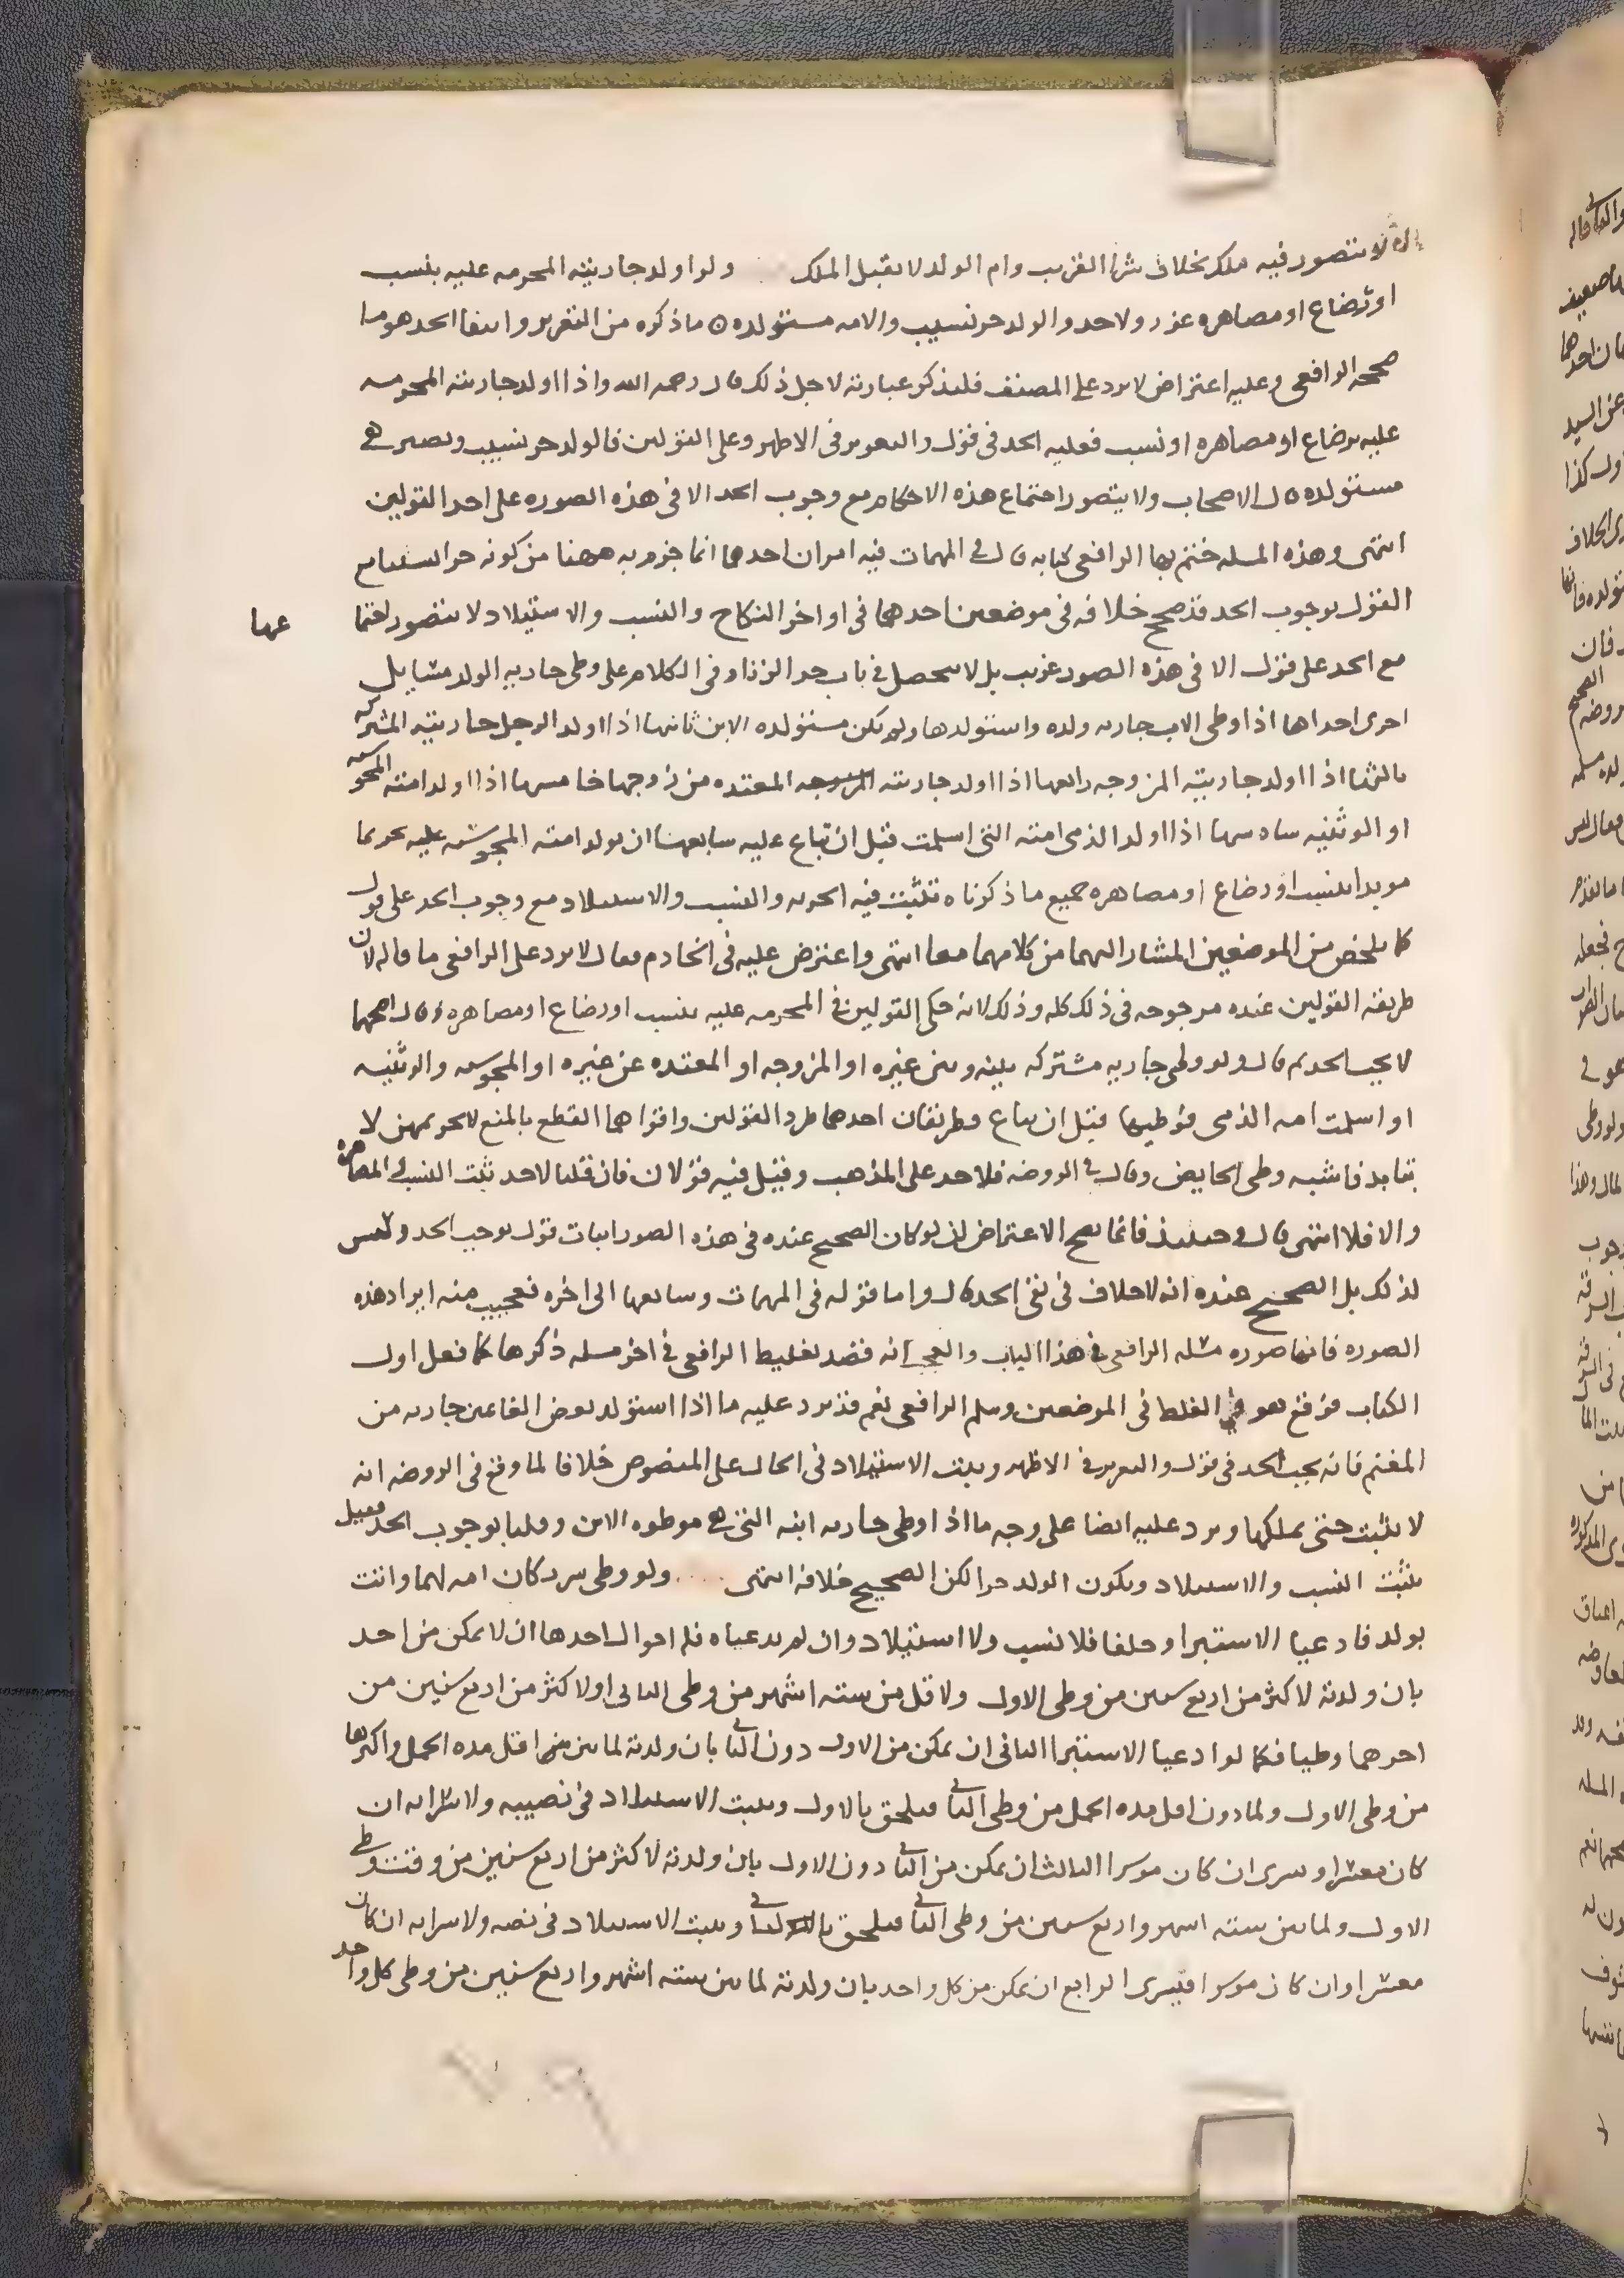 لا يتصور فيه ملكه بخلاف شرا القريب وام الولد لا تقبل الملك ولو اولد جاريته المحرمه عليه بنسب
او رضاع او مصاهره عزر ولا حد والولد حر نسيب والامه مستولده ٥ ما ذكره من التعزير وانتفا الحد هو ما
صححه الرافعي وعليه اعتراض لا يرد على المصنف فلنذكر عبارته لاجل ذلك قال رحمه الله واذا اولد جاريته المحرمه
عليه برضاع او مصاهره او نسب فعليه الحد في قول والتعزير في الاظهر وعلى القولين فالولد حر نسيب وتصير هي
مستولده قال الاصحاب ولا يتصور اجتماع هذه الاحكام مع وجوب الحد الا في هذه الصوره على احد القولين
انتهى وهذه المسله ختم بها الرافعي كتابه قال في المهمات فيه امران احدهما انما جزم به ههنا من كونه حرا نسيبا مع
القول بوجوب الحد قد صحح خلافه في موضعين احدهما في اواخر النكاح والنسب والاستيلاد لا يتصور
عها
مع الحد على قول الا في هذه الصور غريب بل لا يتحصل في باب حد الزنا وفي الكلام على وطي جاريه الولد مسايل
اخرى احداها اذا وطي الاب جاريه ولده واستولدها ولم تكن مستولده الابن ثانيها اذا اولد الرجل جاريته المشتركه
ثالثها اذا اولد جاريته المزوجه رابعها اذا اولد جاريته المعتده من زوجها خامسها اذا اولد امته المجوسيه
او الوثنيه سادسها اذا اولد الذمي امته التي اسلمت قبل ان تباع عليه سابعها ان يولد امته المجوسيه عليه تحريما
موبدا بنسب او رضاع او مصاهره جميع ما ذكرناه تثبت فيه الحريه والنسب والاستيلاد مع وجوب الحد على قول
كما يلخص من الموضعين المشار اليهما من كلامهما معا انتهى واعترض عليه في الخادم فقال لا يرد على الرافعي ما قاله لان
طريقه القولين عنده مرجوحه في ذلك كله وذلك لانه حكى القولين في المحرمه عليه بنسب او رضاع او مصاهره وقال اصحهما
لا يجب الحد ثم قال ولو وطي جاريه مشتركه بينه وبين غيره او المزوجه او المعتده عن غيره او المجوسيه والوثنيه
او اسلمت امه الذمي فوطيها قبل ان تباع فطريقان احدهما طرد القولين واقواهما القطع بالمنع لا تحريمهن لا
يتابد فاشبه وطي الحايض وقال في الروضه فلا حد على المذهب وقيل فيه قولان فان قلنا لا حد ثبت النسب والمصاهره
والا فلا انتهى قال وحينيذ فانما يصح الاعتراض ان لو كان الصحيح عنده في هذه الصور اثبات قول بوجب الحد وليس
لذلك بل الصحيح عنده انه لا خلاف في نفي الحد قال واما قوله في المهمات وسابعها الى اخره فعجيب منه ايراد هذه
الصوره فانها صوره مسله الرافعي في هذا الباب والعجب انه قصد تغليط الرافعي في اخر مسله ذكرها كما فعل اول
الكتاب فوقع هو في الغلط في الموضعين وسلم الرافعي نعم قد يرد عليه ما اذا استولد بعض الغانمين جاريه من
المغنم فانه يجب الحد في قول والتعزير في الاظهر ويثبت الاستيلاد في الحال على المنصوص خلافا لما وقع في الروضه انه
لا يثبت حتى يملكها ويرد عليه ايضا على وجه ما اذا وطي جاريه ابنه التي هي موطوه الابن وقلنا بوجوب الحد فقيل
يثبت النسب والاستيلاد ويكون الولد حرا لكن الصحيح خلافه انتهى ولو وطي شريكان امه لهما واتت
بولد فادعيا الاستبرا وحلفا فلا نسب ولا استيلاد وان لم يدعياه فله احوال احدها ان لا يمكن من احد
بان ولدته لاكثر من اربع سنين من وطي الاول ولاقل من سته اشهر من وطي الثاني او لاكثر من اربع سنين من
اخرهما وطيا فكما لو ادعيا الاستبرا الثاني ان يمكن من الاول دون الثاني بان ولدته لما بين اقل مده الحمل واكثرها
من وطي الاول ولما دون اقل مده الحمل من وطي الثاني فيلحق بالاول ويثبت الاستيلاد في نصيبه ولا سرايه ان
كان معسرا وسرى ان كان موسرا الثالث ان يمكن من الثاني دون الاول بان ولدته لاكثر من اربع سنين من وقت وطي
الاول ولما بين سته اشهر واربع سنين من وطي الثاني فيلحق بالثاني ويثبت الاستيلاد في نصيبه ولا سرايه ان كان
معسرا وان كان موسرا فيسري الرابع ان يمكن من كل واحد بان ولدته لما بين سته اشهر واربع سنين من وطي كل واحد